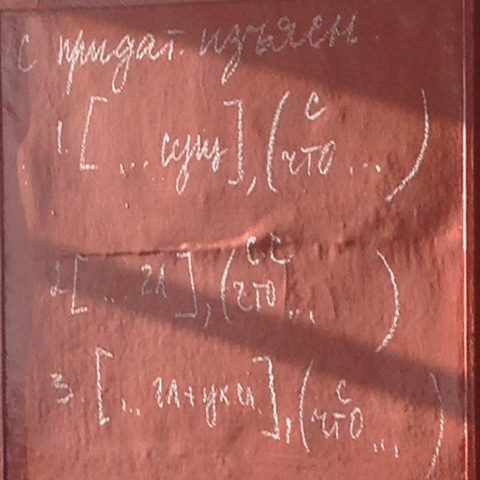 с придат. изъясн.
с
1. [ ... сущ ], ( что ... )
с.с
2. [ ... гл ], ( что ... )
с
3. [ ... гл+ук.сл. ], ( что ... )